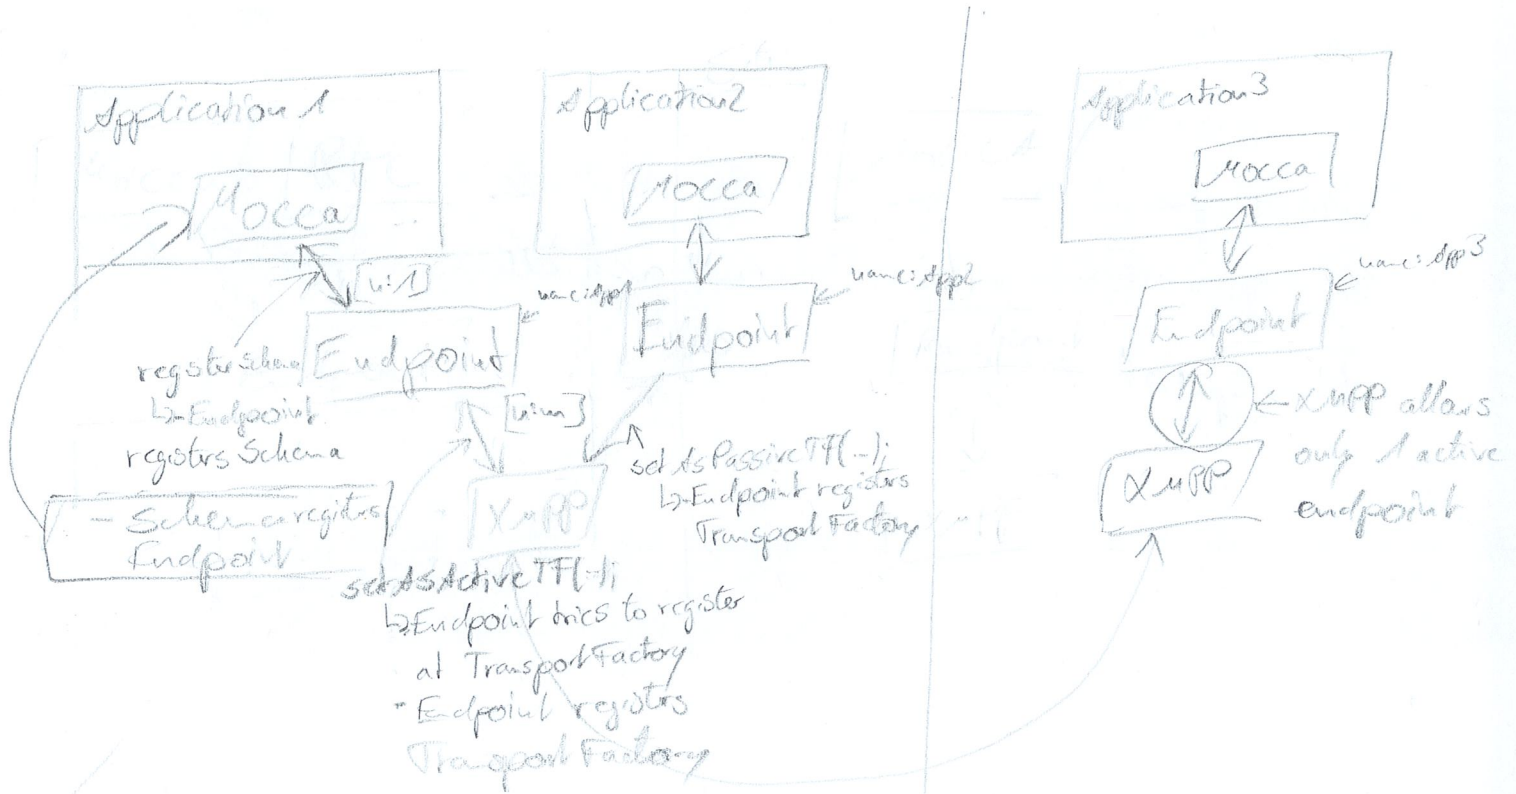 Application 1
Mocca
[n:1]
name: App1
Endpoint
registerSchema
↳ Endpoint
registers Schema
- Schema registers
Endpoint
[n:m]
XMPP
setAsActiveTF(-);
↳ Endpoint tries to register
at TransportFactory
- Endpoint registers
TransportFactory
Application2
Mocca
name: App2
Endpoint
setAsPassiveTF(-);
↳ Endpoint registers
TransportFactory
Application3
Mocca
name: App3
Endpoint
← XMPP allows
only 1 active
endpoint
XMPP